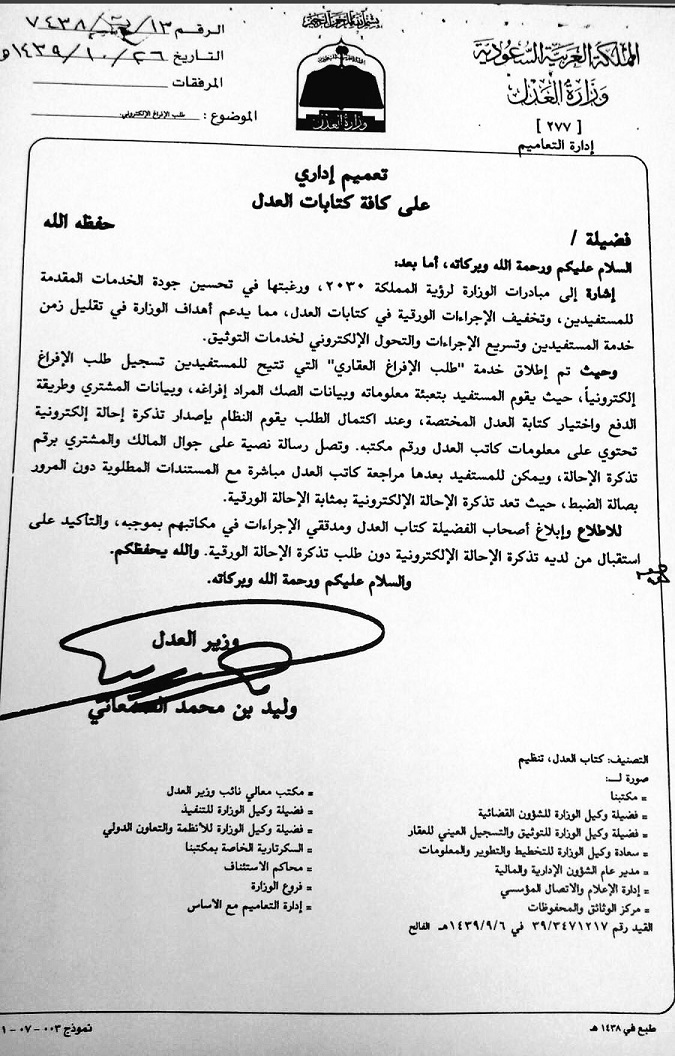 بسم الله الرحمن الرحيم
المملكة العربية السعودية
وزارة العدل
[ ٢٧٧ ]
إدارة التعاميم
وزارة العدل
الرقم ١٣/ت/٧٤٣٨
التاريخ ١٤٣٩/١٠/٢٦هـ
المرفقات
الموضوع : طلب الإفراغ الإلكتروني.
تعميم إداري
على كافة كتابات العدل
فضيلة / حفظه الله
السلام عليكم ورحمة الله وبركاته، أما بعد:
إشارة إلى مبادرات الوزارة لرؤية المملكة ٢٠٣٠، ورغبتها في تحسين جودة الخدمات المقدمة
للمستفيدين، وتخفيف الإجراءات الورقية في كتابات العدل، مما يدعم أهداف الوزارة في تقليل زمن
خدمة المستفيدين وتسريع الإجراءات والتحول الإلكتروني لخدمات التوثيق.
وحيث تم إطلاق خدمة "طلب الإفراغ العقاري" التي تتيح للمستفيدين تسجيل طلب الإفراغ
إلكترونياً، حيث يقوم المستفيد بتعبئة معلوماته وبيانات الصك المراد إفراغه، وبيانات المشتري وطريقة
الدفع واختيار كتابة العدل المختصة، وعند اكتمال الطلب يقوم النظام بإصدار تذكرة إحالة إلكترونية
تحتوي على معلومات كاتب العدل ورقم مكتبه. وتصل رسالة نصية على جوال المالك والمشتري برقم
تذكرة الإحالة، ويمكن للمستفيد بعدها مراجعة كاتب العدل مباشرة مع المستندات المطلوبة دون المرور
بصالة الضبط، حيث تعد تذكرة الإحالة الإلكترونية بمثابة الإحالة الورقية.
للاطلاع وإبلاغ أصحاب الفضيلة كتاب العدل ومدققي الإجراءات في مكاتبهم بموجبه، والتأكيد على
استقبال من لديه تذكرة الإحالة الإلكترونية دون طلب تذكرة الإحالة الورقية. والله يحفظكم.
والسلام عليكم ورحمة الله وبركاته.
وزير العدل
وليد بن محمد الصمعاني
التصنيف: كتاب العدل، تنظيم
صورة لـــ:
= مكتبنا
= فضيلة وكيل الوزارة للشؤون القضائية
= فضيلة وكيل الوزارة للتوثيق والتسجيل العيني للعقار
= سعادة وكيل الوزارة للتخطيط والتطوير والمعلومات
= مدير عام الشؤون الإدارية والمالية
= إدارة الإعلام والاتصال المؤسسي
= مركز الوثائق والمحفوظات
القيد رقم ٣٩/٣٤٧١٢١٧ في ١٤٣٩/٩/٦هـ الفالح
= مكتب معالي نائب وزير العدل
= فضيلة وكيل الوزارة للتنفيذ
= فضيلة وكيل الوزارة للأنظمة والتعاون الدولي
= السكرتارية الخاصة بمكتبنا
= محاكم الاستئناف
= فروع الوزارة
= إدارة التعاميم مع الأساس
طبع في ١٤٣٨ هـ
نموذج ٠٠٣ - ٠٧ - ١